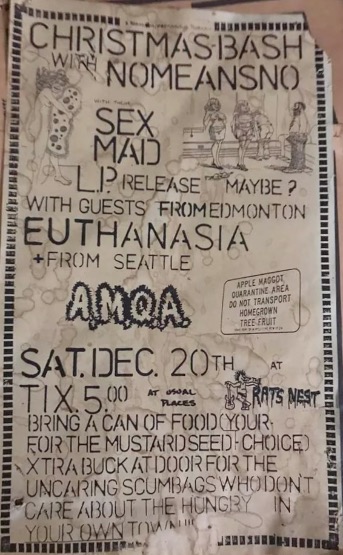 CHRISTMAS·BASH
WITH NOMEANSNO
WITH THEIR
SEX
MAD
L.P. RELEASE PARTY MAYBE?
WITH GUESTS FROM EDMONTON
EUTHANASIA
+FROM SEATTLE
A.M.Q.A.
APPLE MAGGOT
QUARANTINE AREA
DO NOT TRANSPORT
HOMEGROWN
TREE-FRUIT
SAT. DEC. 20TH AT
RATS NEST
TIX. 5.00 AT USUAL
PLACES
BRING A CAN OF FOOD (YOUR
FOR THE MUSTARD SEED - CHOICE)
XTRA BUCK AT DOOR FOR THE
UNCARING SCUMBAGS WHO DON'T
CARE ABOUT THE HUNGRY IN
YOUR OWN TOWN!!!